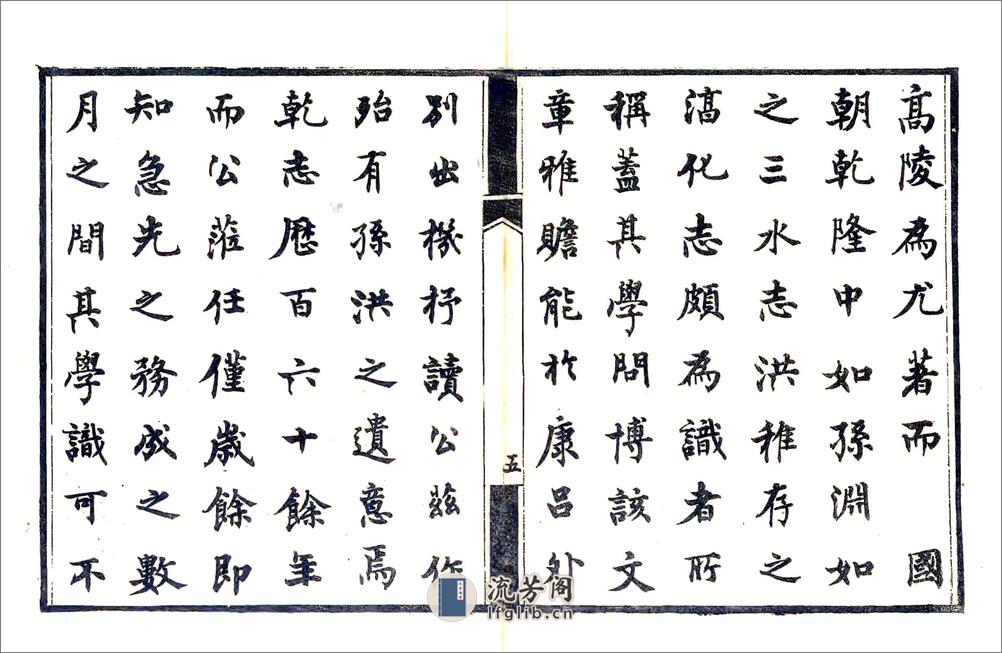 高陵為尤著而　國
朝乾隆中如孫淵如
之三水志洪稚存之
淳化志頗為識者所
稱蓋其學問博該文
章雅贍能於康呂外
五
別出機杼讀公茲作
殆有孫洪之遺意焉
乾志歷百六十餘年
而公蒞任僅歲餘即
知急先之務成之數
月之間其學識可不
流芳阁
lfglib.cn